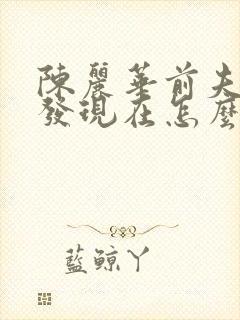 陳麗華前夫
發現在怎麼
藍鯨丫